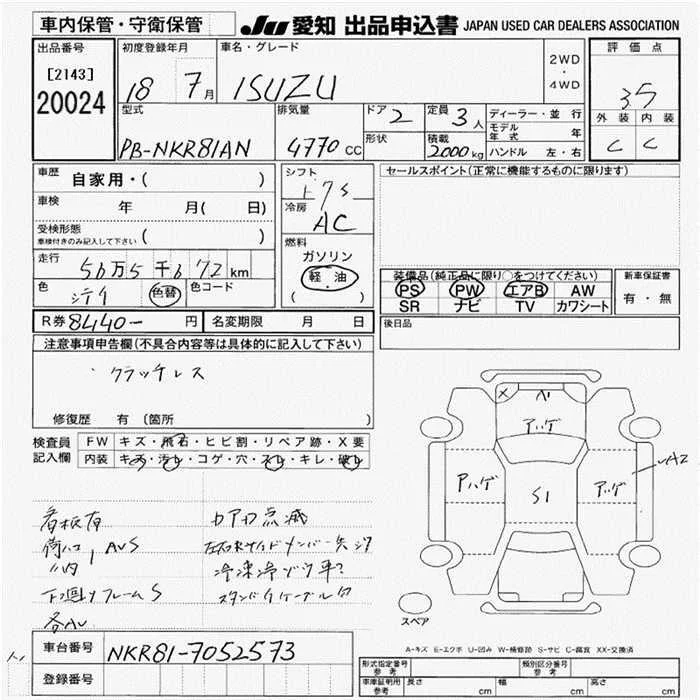 車内保管・守衛保管
JU 愛知 出品申込書 JAPAN USED CAR DEALERS ASSOCIATION
出品番号
[2143]
20024
初度登録年月
18 7月
車名・グレード
ISUZU
2WD
・
4WD
評価点
35
外装 内装
C C
型式
PB-NKR81AN
排気量
4770 CC
ドア 2
形状
定員 3人
積載 2000kg
ディーラー・並行
モデル年式 年
ハンドル 左・右
車歴
自家用・( )
車検
年 月( 日)
受検形態
車検付きのみ記入して下さい ( )
走行
56万5千672km
色
色替
色コード
シフト
冷房
AC
燃料
ガソリン
軽油
( )
セールスポイント(正常に機能するものに限ります)
装備品(純正品に限り○をつけてください)
PS PW エアB AW
SR ナビ TV カワシート
新車保証書
有・無
R券 8440- 円
名変期限 月 日
後日品
注意事項申告欄(不具合内容等は具体的に記入して下さい)
・クラッチレス
修復歴 有(箇所 )
検査員
記入欄
FW キズ・飛石・ヒビ割・リペア跡・X要
内装 キズ・汚レ・コゲ・穴・スレ・キレ・破レ
看板有
下廻りフレームS
各AU
A
アハゲ
アハゲ
アハゲ
S1
A2
スペア
A-キズ E-エクボ U-凹み W-補修跡 S-サビ C-腐食 XX-交換済
車台番号
NKR81-7052573
登録番号
形式指定番号
参考
類別区分番号
参考
車庫証明用
参考
長さ cm
幅 cm
高さ cm